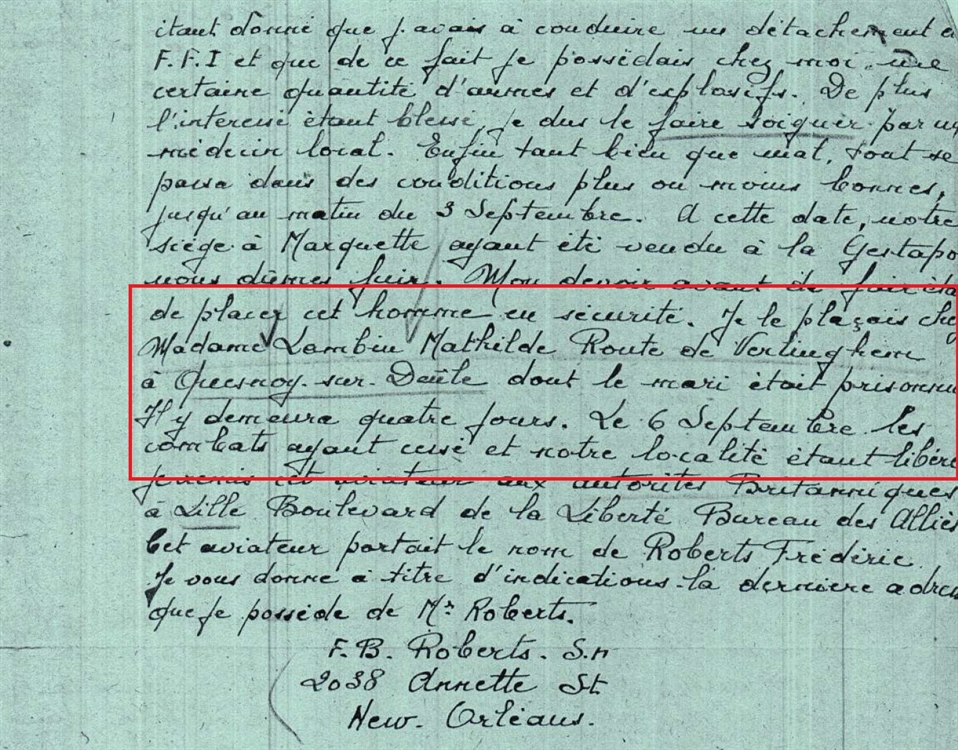 étant donné que j'avais à conduire un détachement
F.F.I et que de ce fait je possédais chez moi une
certaine quantité d'armes et d'explosifs. De plus
l'intéressé étant blessé, je dus le faire soigner par un
médecin local. Enfin tant bien que mal, tout se
passa dans des conditions plus ou moins bonnes,
jusqu'au matin du 3 Septembre. A cette date, notre
siège à Marquette ayant été vendu à la Gestapo
nous dûmes fuir. Mon devoir avant de fuir
de placer cet homme en sécurité. Je le plaçais
Madame Lambin Mathilde Route de Verlinghem
à Quesnoy-sur-Deûle dont le mari était
Il y demeura quatre jours. Le 6 Septembre les
combats ayant cessé et notre localité étant
je remis cet aviateur aux autorités Britanniques
à Lille Boulevard de la Liberté Bureau des Alliés
Cet aviateur portait le nom de Roberts Frédéric
Je vous donne à titre d'indications la dernière
que je possède de Mr Roberts.
F.B. Roberts. S.n
2038 Annette St
New-Orléans.